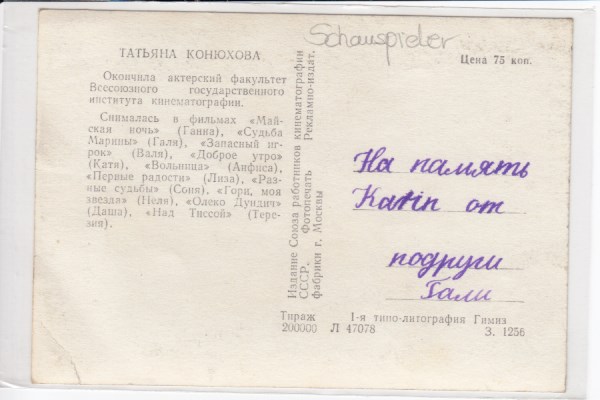 Schauspieler
ТАТЬЯНА КОНЮХОВА
Окончила актерский факультет
Всесоюзного государственного
института кинематографии.
Снималась в фильмах «Май-
ская ночь» (Ганна), «Судьба
Марины» (Галя), «Запасный иг-
рок» (Валя), «Доброе утро»
(Катя), «Вольница» (Анфиса),
«Первые радости» (Лиза), «Раз-
ные судьбы» (Соня), «Гори, моя
звезда» (Неля), «Олеко Дундич»
(Даша), «Над Тиссой» (Тере-
зия).
Издание Союза работников кинематографии
СССР. Фотопечать Рекламно-издат.
фабрики г. Москвы
Цена 75 коп.
На память
Katrin от
подруги
Гали
Тираж
200000
1-я типо-литография Гимиз
Л 47078 З. 1256